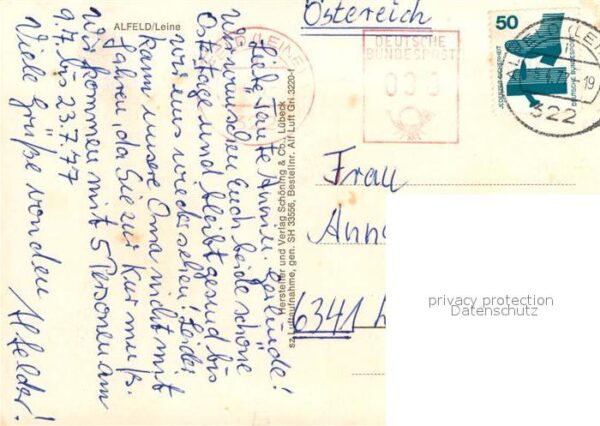 ALFELD/Leine
Liebe Tante Anni u. Gertrude!
Wir wünschen Euch beide schöne
Ostertage und bleibt gesund bis
wir uns wiedersehen! Leider
kann unsere Oma nicht mit
fahren, da Sie zur Kur muß.
Wir kommen mit 5 Personen am
9.7. bis 23.7.77
Viele Grüße von den
Alfelder!
Hersteller und Verlag Schöning & Co., Lübeck
sz. Luftaufnahme, gen. SH 33556, Bestellnr. Alf Luft Gri. 3220-1
Österreich
(LEINE)
DEUTSCHE
BUNDESPOST
50
JEDERZEIT SICHERHEIT
DEUTSCHE BUNDESPOST
322
Frau
6341
privacy protection
Datenschutz